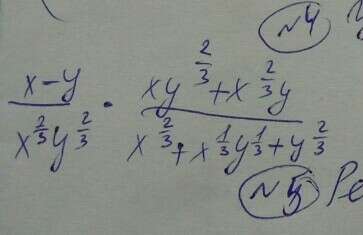 №4
\frac{x-y}{x^{\frac{2}{3}}y^{\frac{2}{3}}} \cdot \frac{xy^{\frac{2}{3}}+x^{\frac{2}{3}}y}{x^{\frac{2}{3}}+x^{\frac{1}{3}}y^{\frac{1}{3}}+y^{\frac{2}{3}}}
№5 Ре